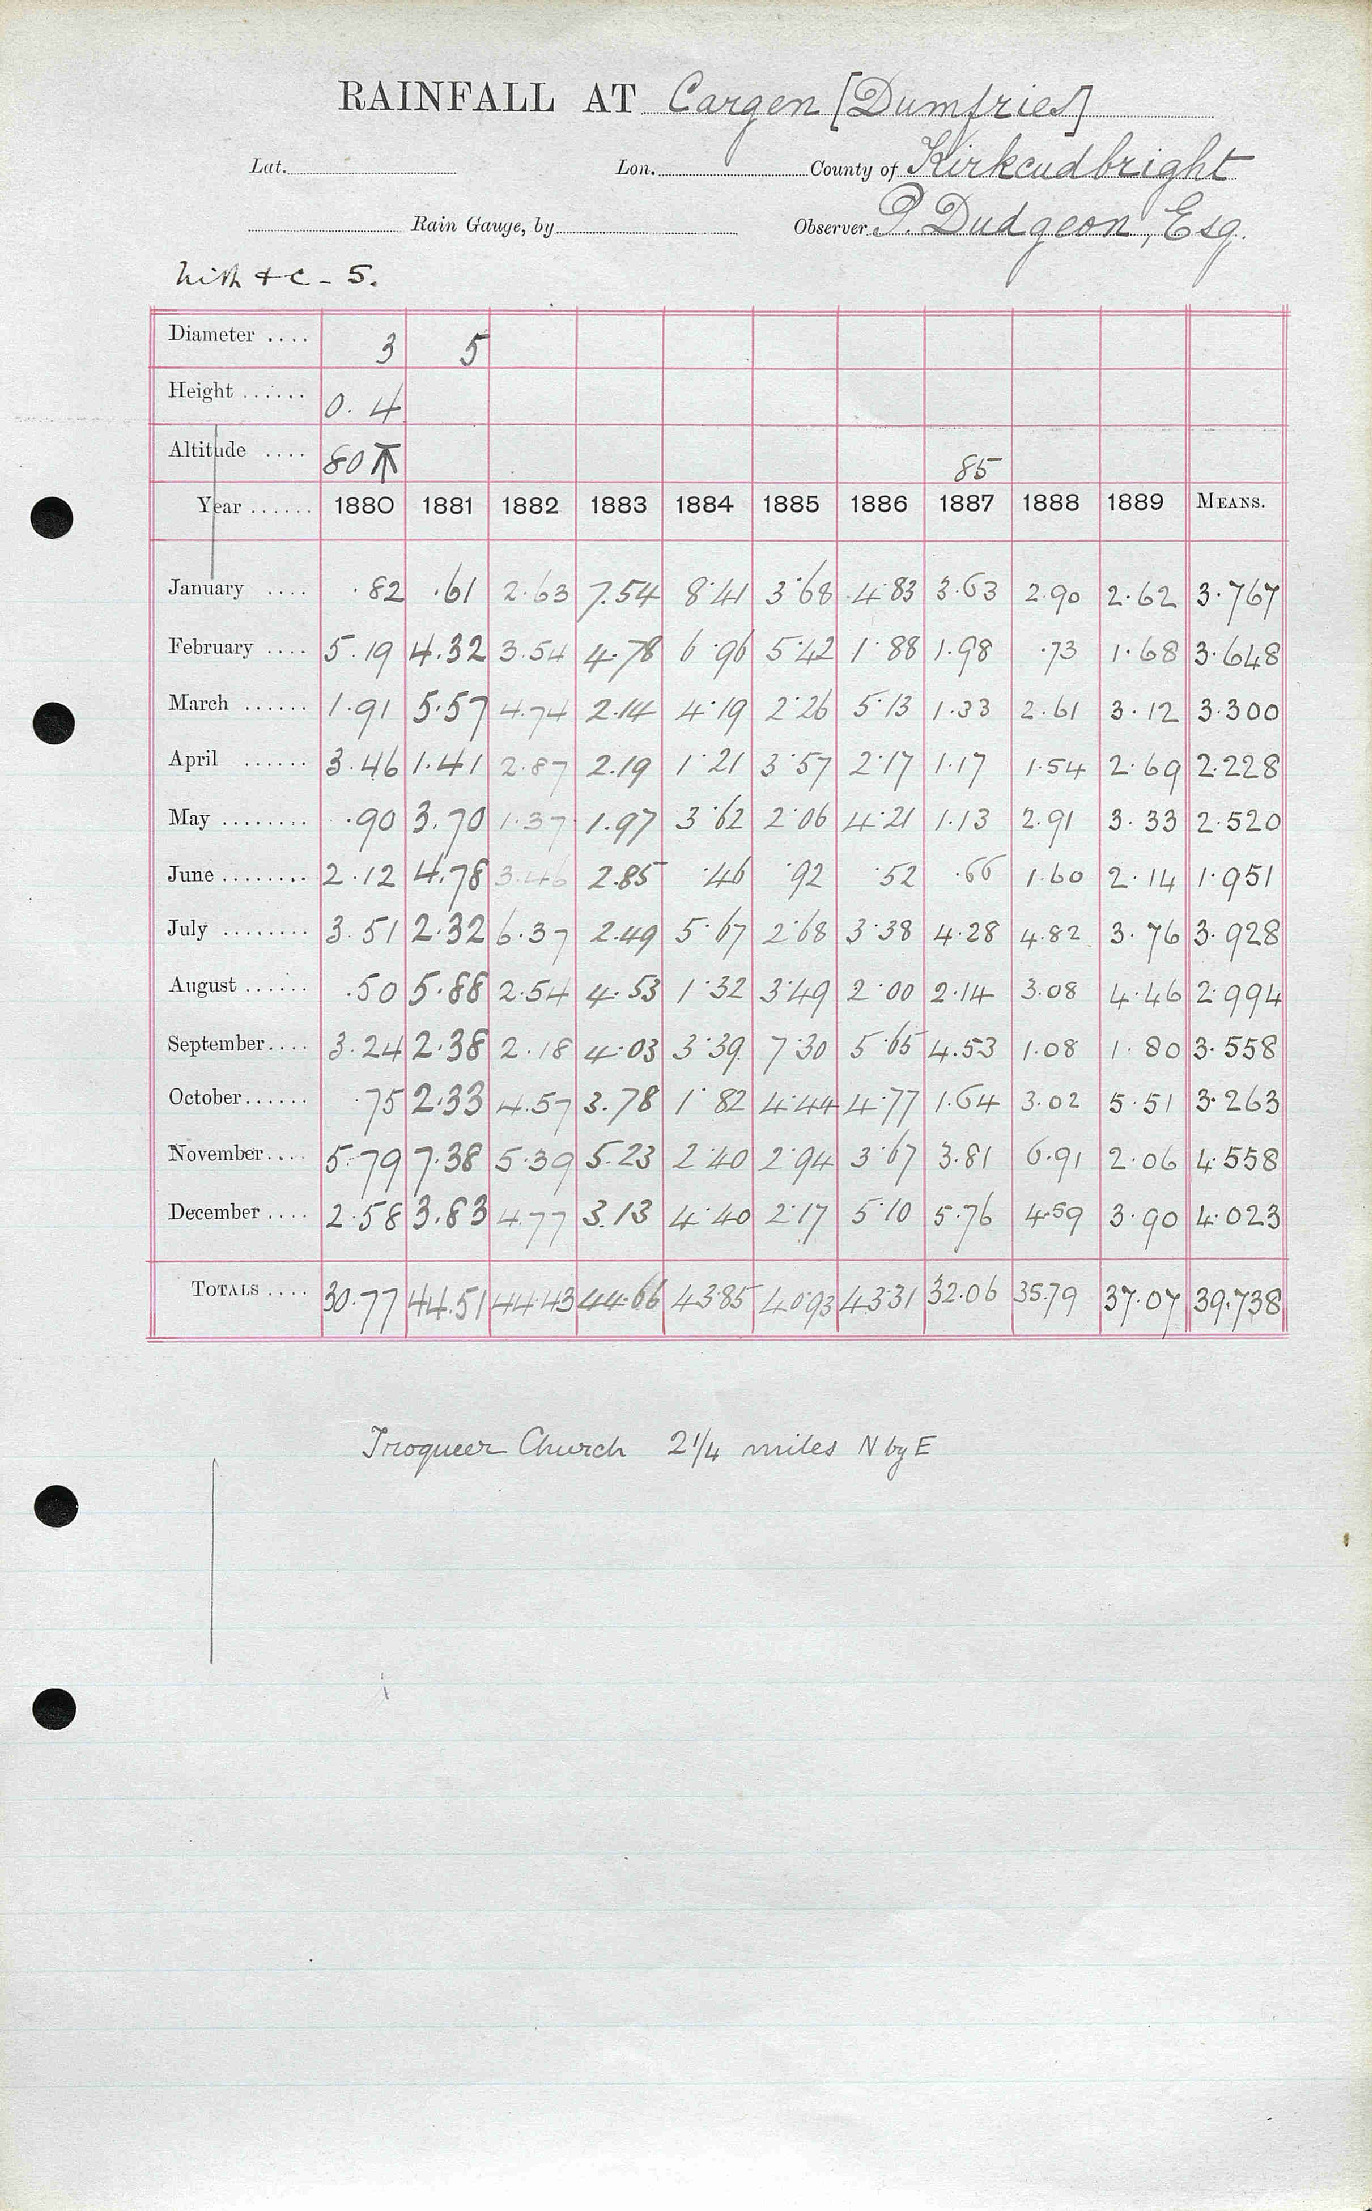 RAINFALL AT Cargen [Dumfries]
Lat. Lon. County of Kirkcudbright
Rain Gauge, by Observer P. Dudgeon, Esq.
Nith & C - 5.
Diameter .... 3 5
Height ...... 0. 4
Altitude .... 80 85
Year ...... 1880 1881 1882 1883 1884 1885 1886 1887 1888 1889 MEANS.
January .... .82 .61 2.63 7.54 8.41 3.68 4.83 3.63 2.90 2.62 3.767
February .... 5.19 4.32 3.54 4.78 6.96 5.42 1.88 1.98 .73 1.68 3.648
March ...... 1.91 5.57 4.74 2.14 4.19 2.26 5.13 1.33 2.61 3.12 3.300
April ...... 3.46 1.41 2.87 2.19 1.21 3.57 2.17 1.17 1.54 2.69 2.228
May ........ .90 3.70 1.37 1.97 3.62 2.06 4.21 1.13 2.91 3.33 2.520
June ........ 2.12 4.78 3.46 2.85 .46 .92 .52 .66 1.60 2.14 1.951
July ........ 3.51 2.32 6.37 2.49 5.67 2.68 3.38 4.28 4.82 3.76 3.928
August ...... .50 5.88 2.54 4.53 1.32 3.49 2.00 2.14 3.08 4.46 2.994
September .... 3.24 2.38 2.18 4.03 3.39 7.30 5.65 4.53 1.08 1.80 3.558
October ...... .75 2.33 4.57 3.78 1.82 4.44 4.77 1.64 3.02 5.51 3.263
November .... 5.79 7.38 5.39 5.23 2.40 2.94 3.67 3.81 6.91 2.06 4.558
December .... 2.58 3.83 4.77 3.13 4.40 2.17 5.10 5.76 4.59 3.90 4.023
TOTALS .... 30.77 44.51 44.43 44.66 43.85 40.93 43.31 32.06 35.79 37.07 39.738
Troqueer Church 2 1/4 miles N by E